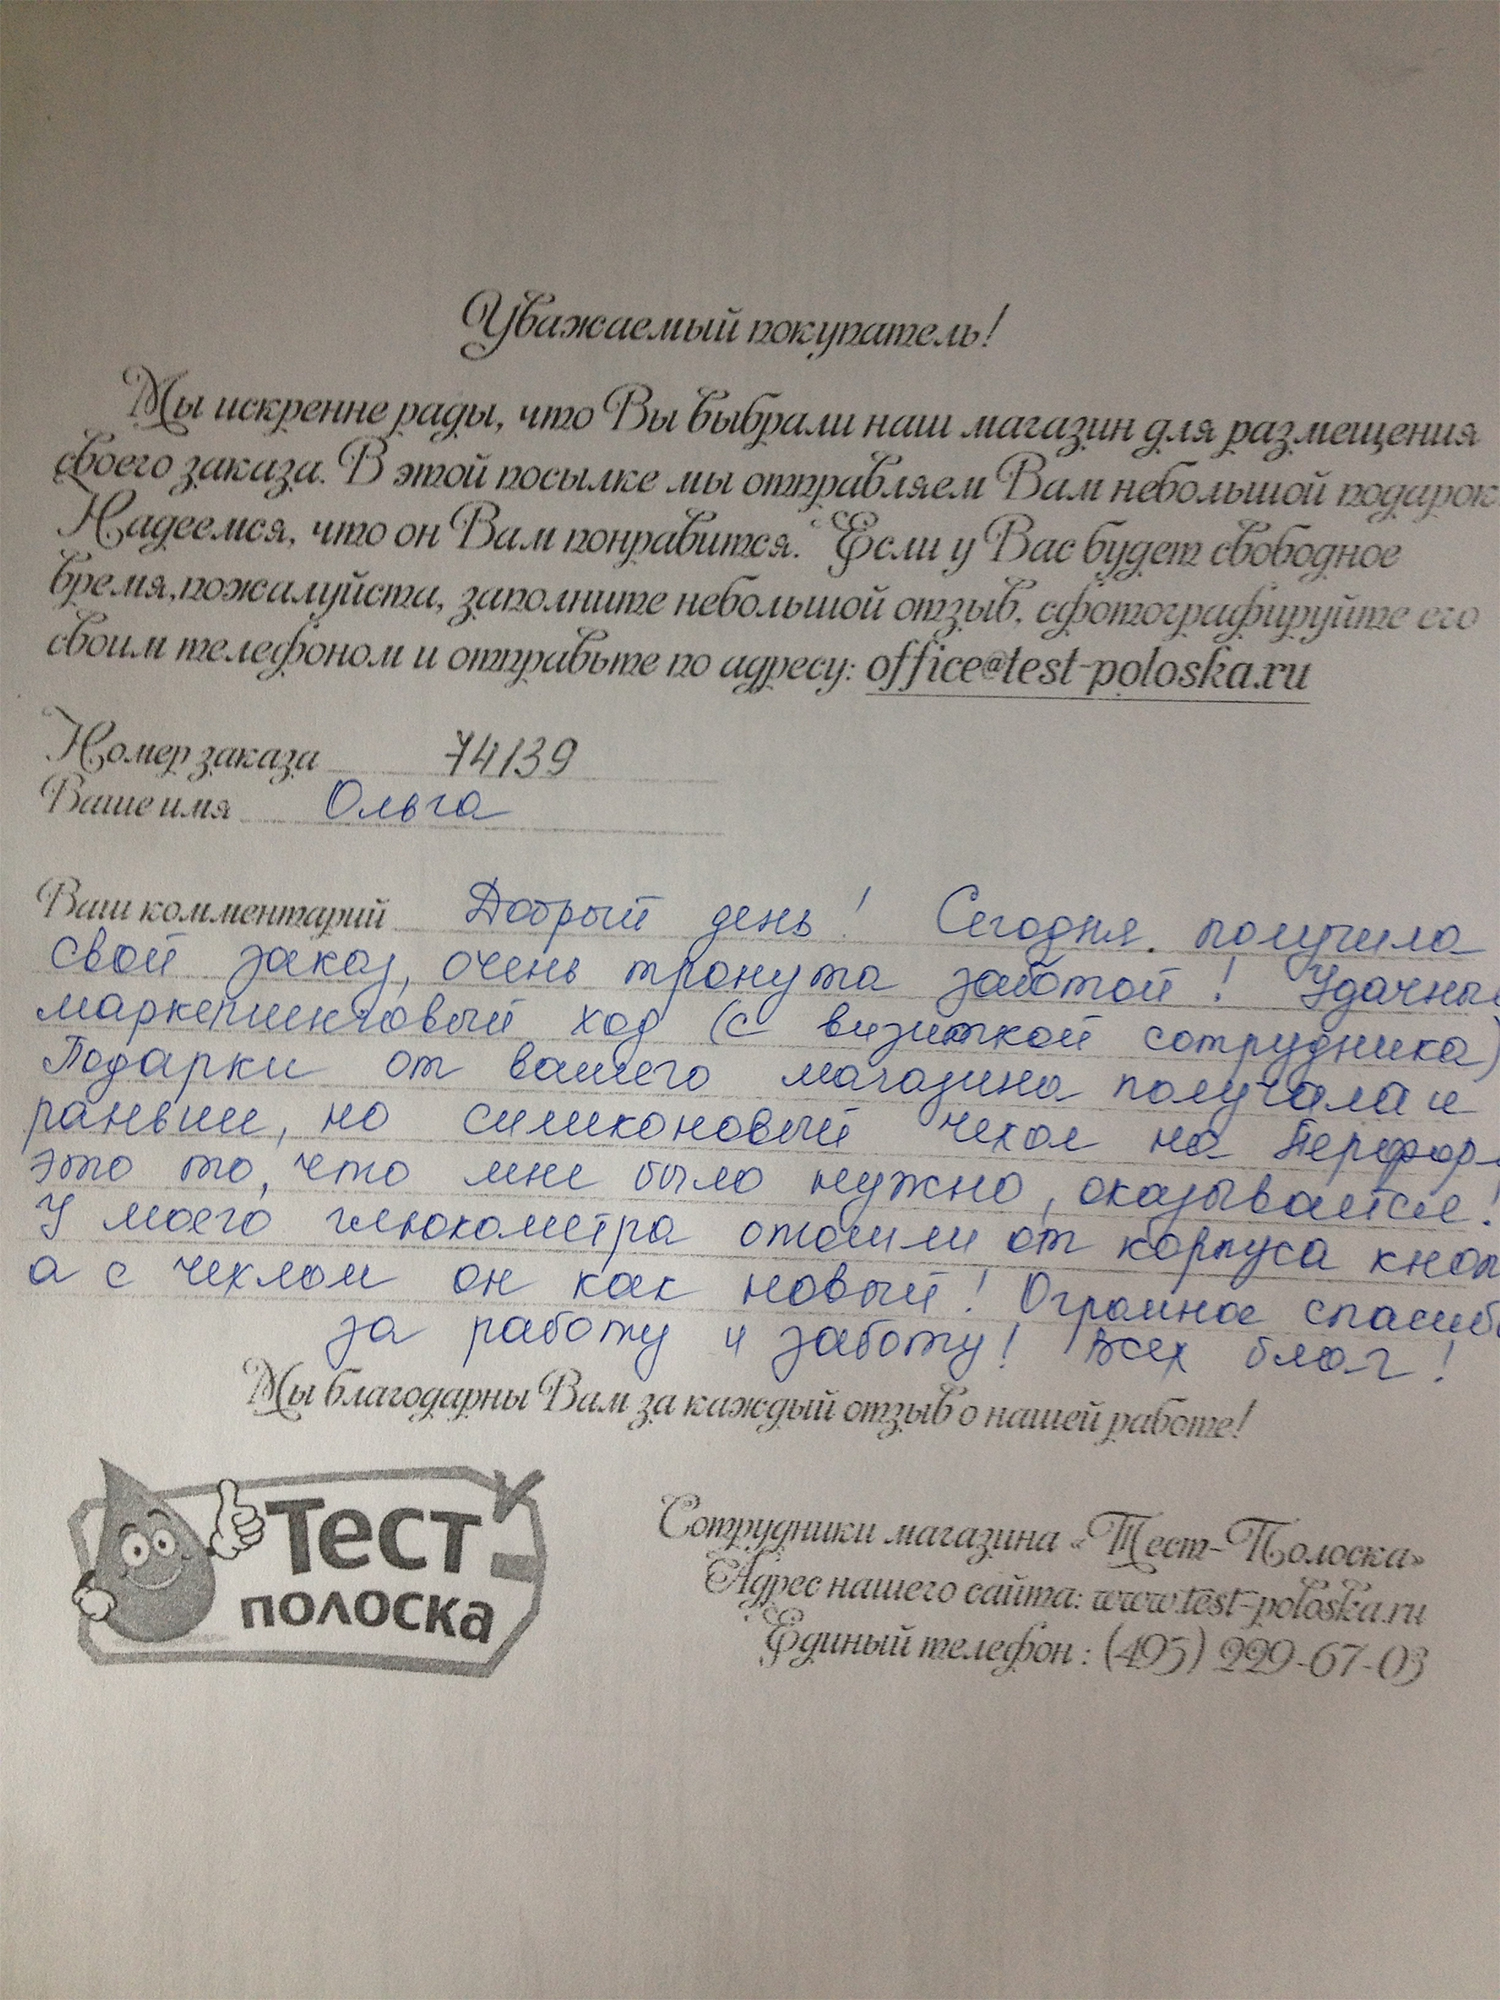 Уважаемый покупатель!
Мы искренне рады, что Вы выбрали наш магазин для размещения
своего заказа. В этой посылке мы отправляем Вам небольшой подарок
Надеемся, что он Вам понравится. Если у Вас будет свободное
время,пожалуйста, заполните небольшой отзыв, сфотографируйте его
своим телефоном и отправьте по адресу: office@test-poloska.ru
Номер заказа 74139
Ваше имя Ольга
Ваш комментарий Добрый день! Сегодня получила
свой заказ, очень тронута заботой! Удачный
маркетинговый ход (с визиткой сотрудника)
Подарки от вашего магазина получала и
раньше, но силиконовый чехол на Перфор
это то, что мне было нужно, оказывается!
У моего глюкометра отошли от корпуса кноп
а с чехлом он как новый! Огромное спасибо
за работу и заботу! Всех благ!
Мы благодарны Вам за каждый отзыв о нашей работе!
Тест
полоска
Сотрудники магазина «Тест-Полоска»
Адрес нашего сайта: www.test-poloska.ru
Единый телефон : (495) 229-67-03